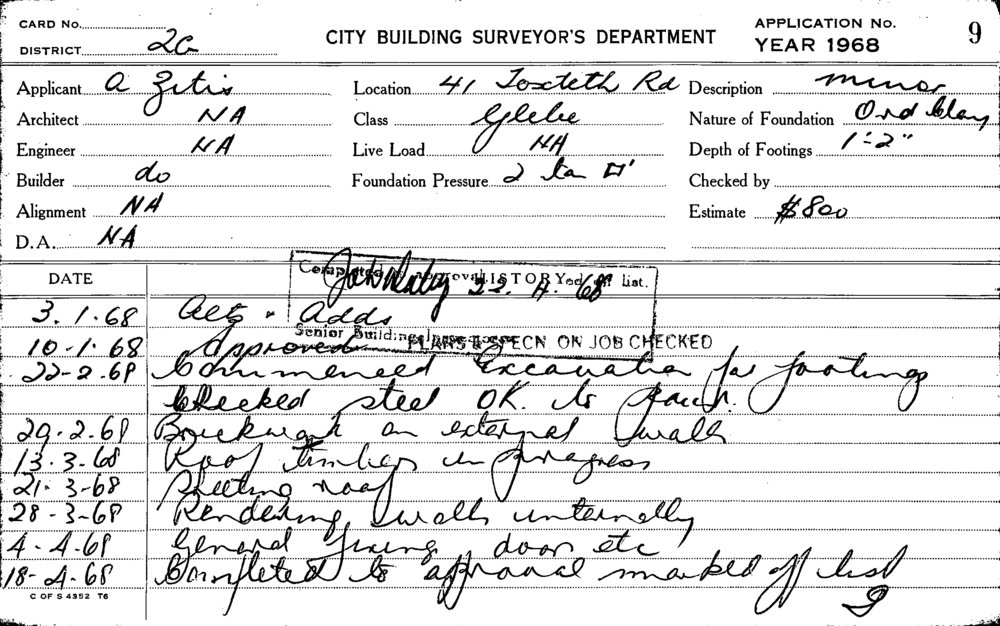 CARD No.
DISTRICT 2G
CITY BUILDING SURVEYOR'S DEPARTMENT
APPLICATION No.
YEAR 1968
9
Applicant A Zitis
Location 41 Toxteth Rd
Description minor
Architect NA
Class Glebe
Nature of Foundation Ord Clay
Engineer NA
Live Load NA
Depth of Footings 1'-2"
Builder do
Foundation Pressure 2 ton □'
Checked by
Alignment NA
Estimate $800
D.A. NA
DATE HISTORY
Completed to approval off list.
22. 4. 68
Senior Building
PLANS & SPECN. ON JOB CHECKED
3.1.68 Alts & Adds
10-1.68 Approved
22-2.68 Commenced Excavation for footings
Checked steel OK. to pour.
29.2.68 Brickwork on external walls
13.3.68 Roof timbers in progress
21.3-68 Sheeting roof
28-3-68 Rendering walls internally
4-4.68 General fixing door etc
18-4.68 Completed to approval marked off list
C OF S 4352 T6